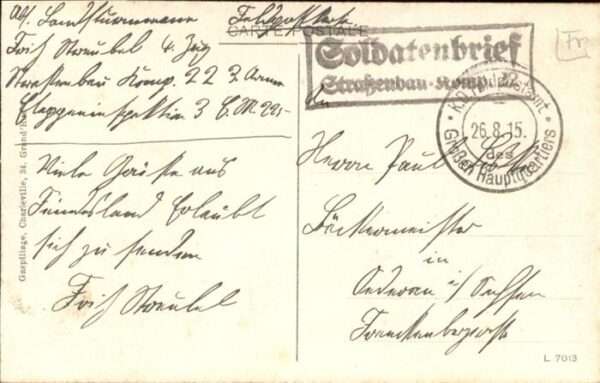 Abs. Landsturmmann
Fritz Streubel 4. Zug
Strassenbau Komp. 22 3. Armee
Etappeninspektion 3
Feldpostkarte
CARTE POSTALE
Soldatenbrief
Straßenbau-Komp. 22
Fr
26.8.15.
des
Großen Hauptquartiers
Viele Grüße aus
Feindesland erlaubt
sich zu senden
Fritz Streubel
An
Herrn Paul
Bäckermeister
in
Oederan i/ Sachsen
Frankenbergerstr
Guepillage, Charleville, 34, Grand'
L 7013